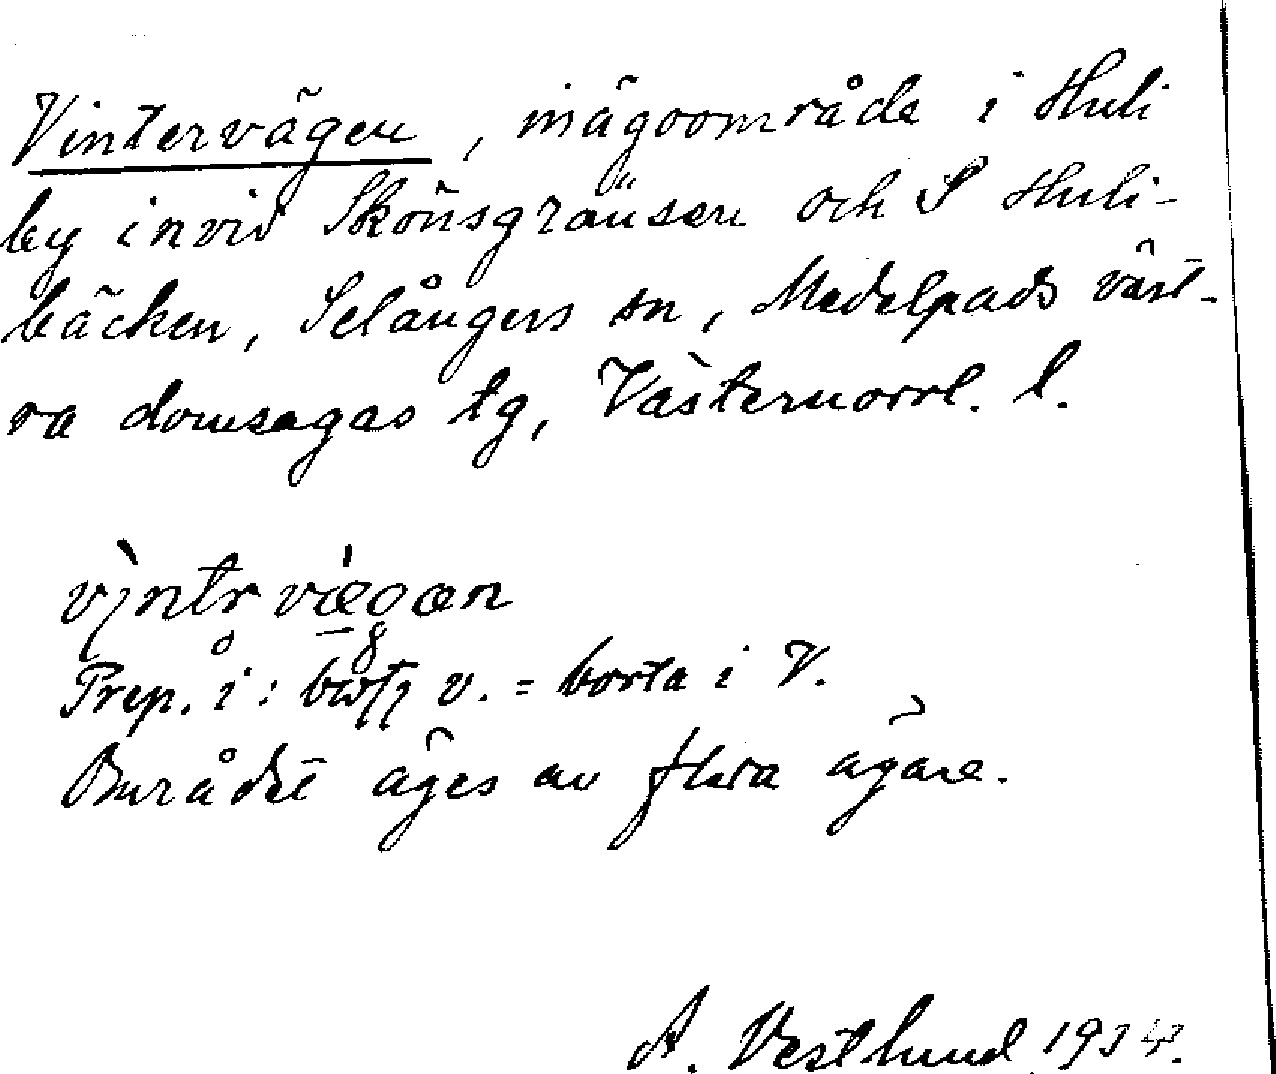 Vintervägen, inägoområde i Huli
by invid Skönsgränsen och S Huli-
bäcken, Selångers sn, Medelpads väst-
ra domsagas tg, Västernorrl. l.
Prep. i: v. = borta i V.
Området äges av flera ägare.
A. Vestlund 1934.